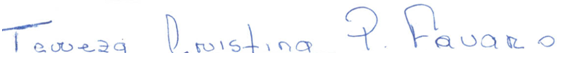 Tereza Cristina P. Favaro